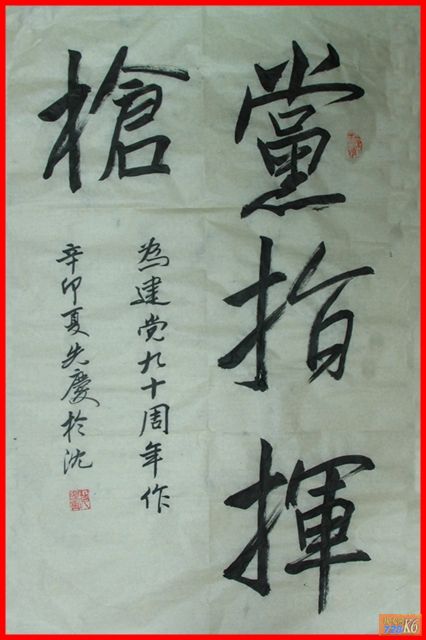 黨指揮
槍
為建党九十周年作
辛卯夏先慶於沈